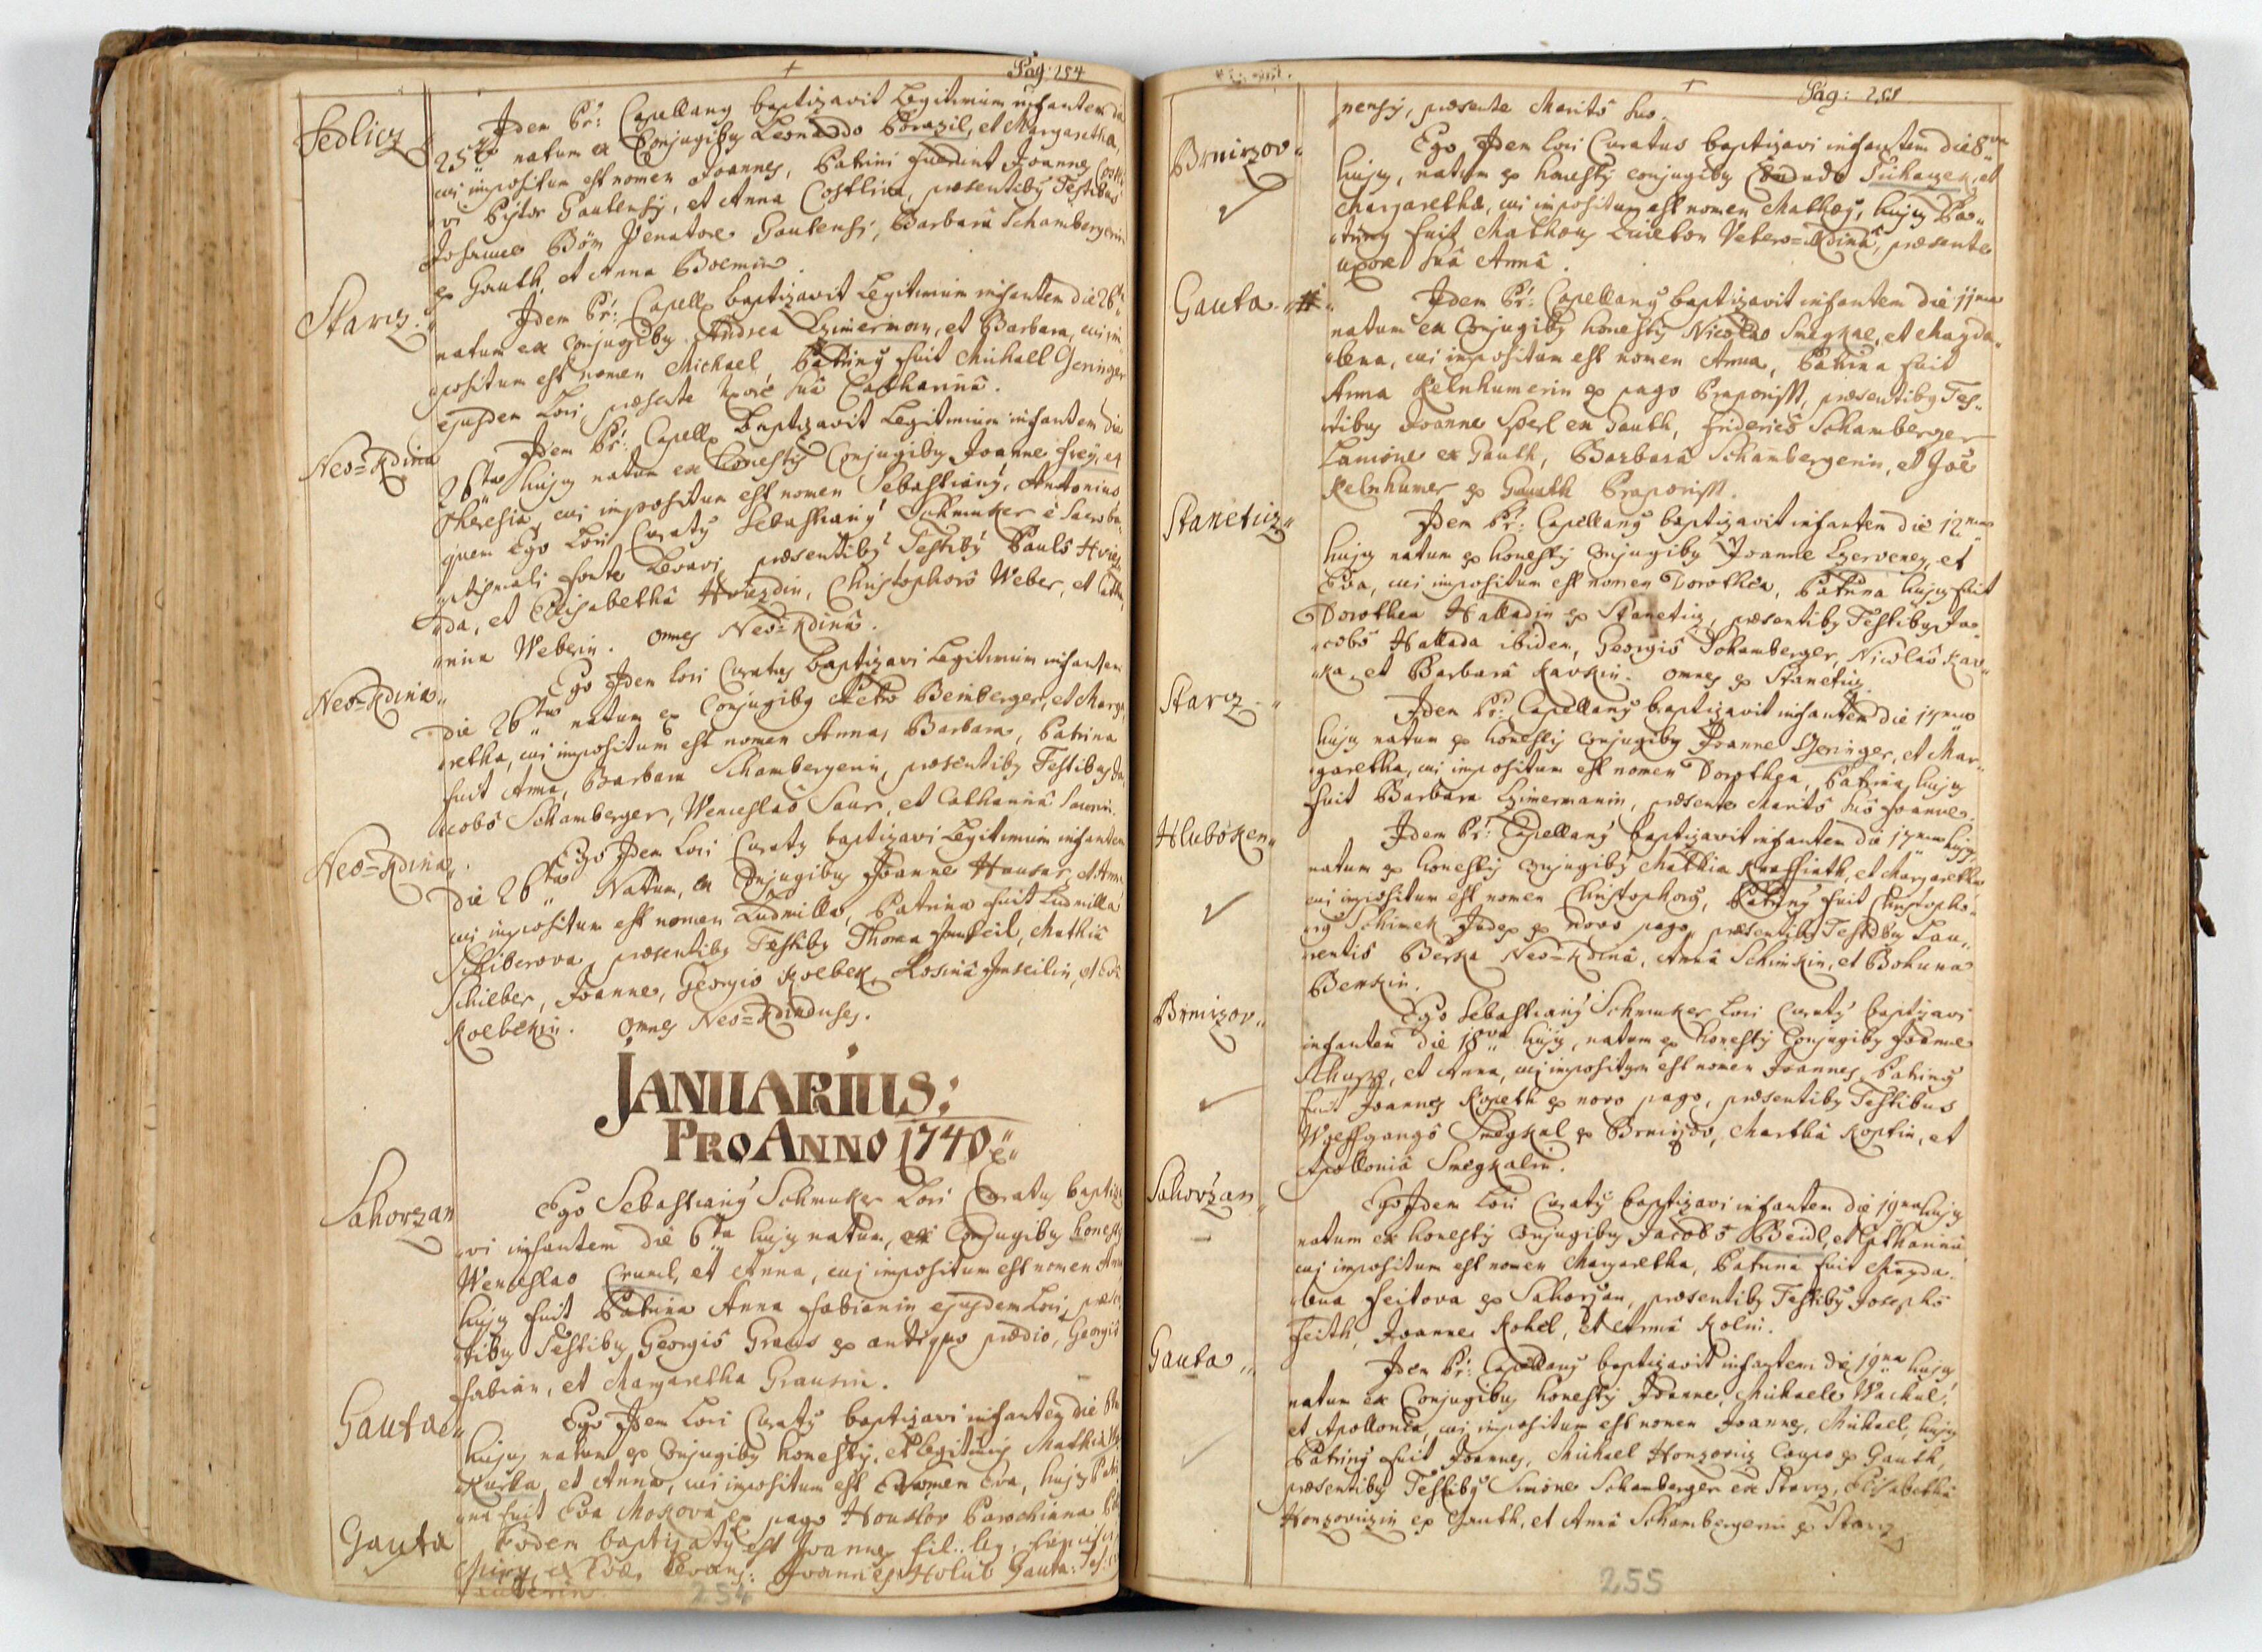 Pag: 254
Sedlicz
Idem Pr: Capellanq baptizavit Legitimum infantem die
25ta natum ex Conjugibq Leonardo Borazil, et Margaretha,
cui impositum est nomen Joannes, Patrini fuerint Joannes
Pistor Gautensis, et Anna Costlin, præsentibq Testibus
Johanne Böm Venatore Gautensi, Barbara Schambergerin
ex Gauth, et Anna Boemin.
Starcz.
Idem Pr: Capell: baptizavit Legitimum infantem die 26ta
natum ex Conjugibq Andrea Czimerman, et Barbara, cui im
positum est nomen Michael, Patrinq fuit Michael Geringer
ejusdem Loci, præsente Uxore suâ Catharinâ.
Neo=Kdina
Idem Pr: Capell: baptizavit Legitimum infantem die
26ta hujq natum ex honestis Conjugibq Joanne Frey, et
Theresia, cui impositum est nomen Sebastianq, Antonius
quem Ego Loci Curatq Sebastianq Schmuker è Sacro ba
ptismali fonte Levavi, præsentibq Testibq Paulo Hviez
da, et Elisabethâ Hviezdin, Christophoro Weber, et Catha
rina Weberin. omnes Neo=Kdinâ.
Neo=Kdina
Ego Idem Loci Curatus baptizavi Legitimum infantem
Die 26ta natum ex Conjugibq Petro Beinberger, et Marga
retha, cui impositum est nomen Anna, Barbara, Patrina
fuit Anna, Barbara Schambergerin, præsentibq Testibus Ja
cobo Schamberger, Wenceslao Saur, et Catharinâ Saurin.
Neo=Kdina
Ego Idem Loci Curatq baptizavi Legitimum infantem
Die 26ta Natum, ex Conjugibus Joanne Hausar, et Anna
cui impositum est nomen Ludmilla, Patrina fuit Ludmilla
Schiberova, præsentibq Testibq Thoma Jmseil, Mathiâ
Schieber, Joanne, Georgio Kolbek, Rosinâ Jmseilin, et Evâ
Kolbekin. omnes Neo=Kdinenses.
JANUARIUS:
PRO ANNO 1740
Sahorzan
Ego Sebastianq Schmuker Loci Curatus baptiza
vi infantem die 6ta hujq natum, ex Conjugibq honestis
Wenceslao Cruml, et Anna, cuj impositum est nomen Anna
hujq fuit Patrina Anna Fabianin ejusdem Loci, præsen
tibq Testibq Georgio Graus ex antiquo prædio, Georgio
Fabian, et Margaretha Grausin.
Gauta
Ego Idem Loci Curatq baptizavi infantem die 8va
hujus natum ex Conjugibq honestis, et legitimis Mathia
Kurka, et Anna, cui impositum est Nomen Eva, hujq Patri
na fuit Eva Mokova ex pago Houstov Parochiana
Gauta
Eodem baptizatq est Joannes fil: leg:
ex Eva. Levans: Joannes Holub Gauta: Tes:
254
Pag: 255
nensis, præsente Marito suo.
Brnirzov
Ego Idem Loci Curatus baptizavi infantem die 8va
hujq, natum ex honestis conjugibq Conrado Suchazek, et
Margaretha, cui impositum est nomen Mathæq, hujq Pa
trinq fuit Mathæus Zuiefton Vetero=Kdina, præsente
uxore suâ Annâ.
Gauta
Idem Pr: Capellanq baptizavit infantem die 11ma
natum ex Conjugibq honestis Nicolao Smegkal, et Magda
lena, cui impositum est nomen Anna, Patrina fuit
Anna Kelnhumerin ex pago Praporisst, præsentibq Tes
tibus Joanne Sperl ex Gauth, Friderico Schamberger
Lanione ex Gauth, Barbarâ Schambergerin, et Joë
Kelnhumer ex Gauth Praporisst.
Stanetiz
Idem Pr: Capellanq baptizavit infantem die 12ma
hujq natum ex honestis Conjugibq Joanne Czerveney, et
Eva, cui impositum est nomen Dorothea, Patrina hujq fuit
Dorothea Halladin ex Stanetiz, præsentibq Testibq Ja
cobo Hallada ibidem, Georgio Schamberger, Nicolao Kav
ka, et Barbarâ Kavkin. omnes ex Stanetiz.
Starcz
Idem Pr: Capellanq baptizavit infantem die 15ma
hujq natum ex honestis Conjugibq Joanne Geringer, et Mar
garetha, cui impositum est nomen Dorothea, Patrina hujq
fuit Barbara Czimermanin, præsente Marito suo Joanne.
Hluboken
Idem Pr: Capellanq baptizavit infantem die 17ma hujq
natum ex honestis Conjugibq Mathia Knassiath, et Margaretha
cui impositum est nomen Christophorq, Patrinq fuit Christopho
rq Schimek Judex ex novo pago, præsentibq Testibq Lau
rentio Berka Neo=Kdinâ, Annâ Schimkin, et Bohuna
Berkin.
Brnirzov
Ego Sebastianq Schmuker Loci Curatq baptizavi
infantem die 18va hujq, natum ex honestis Conjugibq Joanne
Schugg, et Anna, cuj impositum est nomen Joannes, Patrinq
fuit Joannes Kopeth ex novo pago, præsentibq Testibus
Wolffgango Smegkal ex Brnirzov, Marthâ Koptin, et
Apolloniâ Smegkalin.
Sahorzan
Ego Idem Loci Curatq baptizavi infantem die 19na hujq
natum ex honestis Conjugibq Jacobo Beidl, et Catharina
cuj impositum est nomen Margaretha, Patrina fuit Magda
lena Feitova ex Sahorzan, præsentibq Testibq Josepho
Feith, Joanne Kohel, et Anna Kolni.
Gauta
Idem Pr: Capellanq baptizavit infantem die 19na hujq
natum ex Conjugibus honestis Joanne, Michaele Wachal,
et Apollonia, cuj impositum est nomen Joannes, Michael, hujq
Patrinq fuit Joannes, Michael Honzoviz Caupo ex Gauth,
præsentibq Testibq Simone Schamberger ex Starcz, Elisabethâ
Honzovizin ex Gauth, et Annâ Schambergerin ex Starcz
255